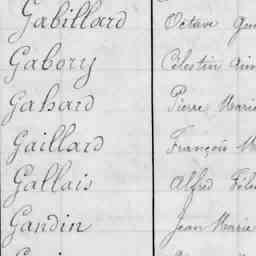 Gabillard Octave
Gabory Célestin
Gahard Pierre Marie
Gaillard François
Gallais Alfred
Gandin Jean Marie